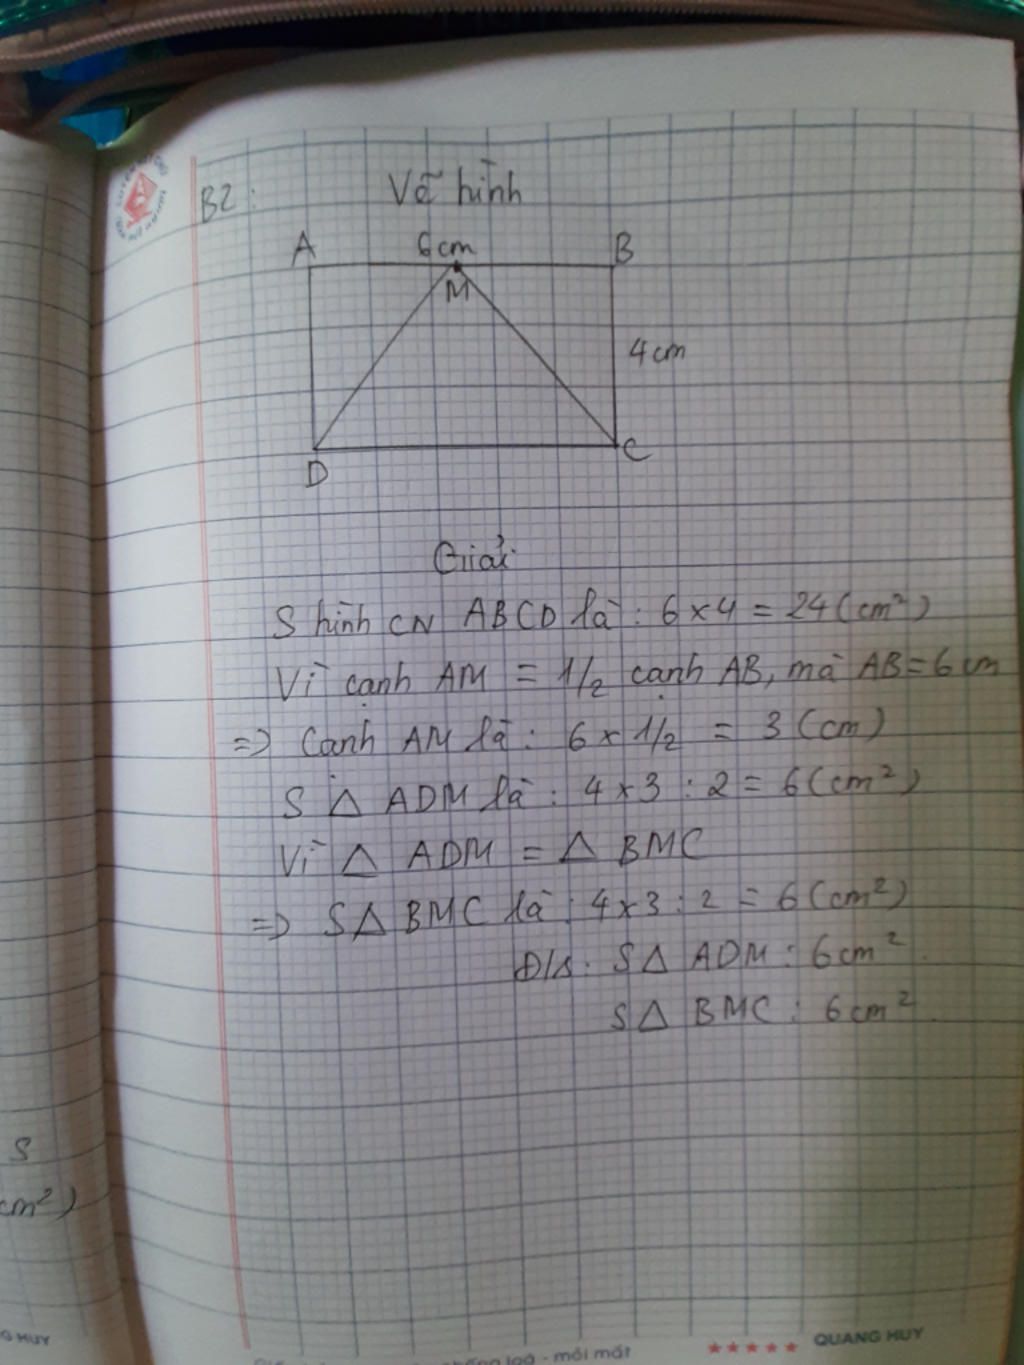 B2:
Vẽ hình
A 6cm B
M
4cm
D C
Giải
S hình CN ABCD là : 6 x 4 = 24 (cm²)
Vì cạnh AM = 1/2 cạnh AB, mà AB = 6 cm
=> Cạnh AM là : 6 x 1/2 = 3 (cm)
S △ ADM là : 4 x 3 : 2 = 6 (cm²)
Vì △ ADM = △ BMC
=> S△ BMC là : 4 x 3 : 2 = 6 (cm²)
Đ/S: S△ ADM : 6cm².
S△ BMC : 6cm².
S
cm²)
G HUY
- mỏi mắt
★★★★★ QUANG HUY